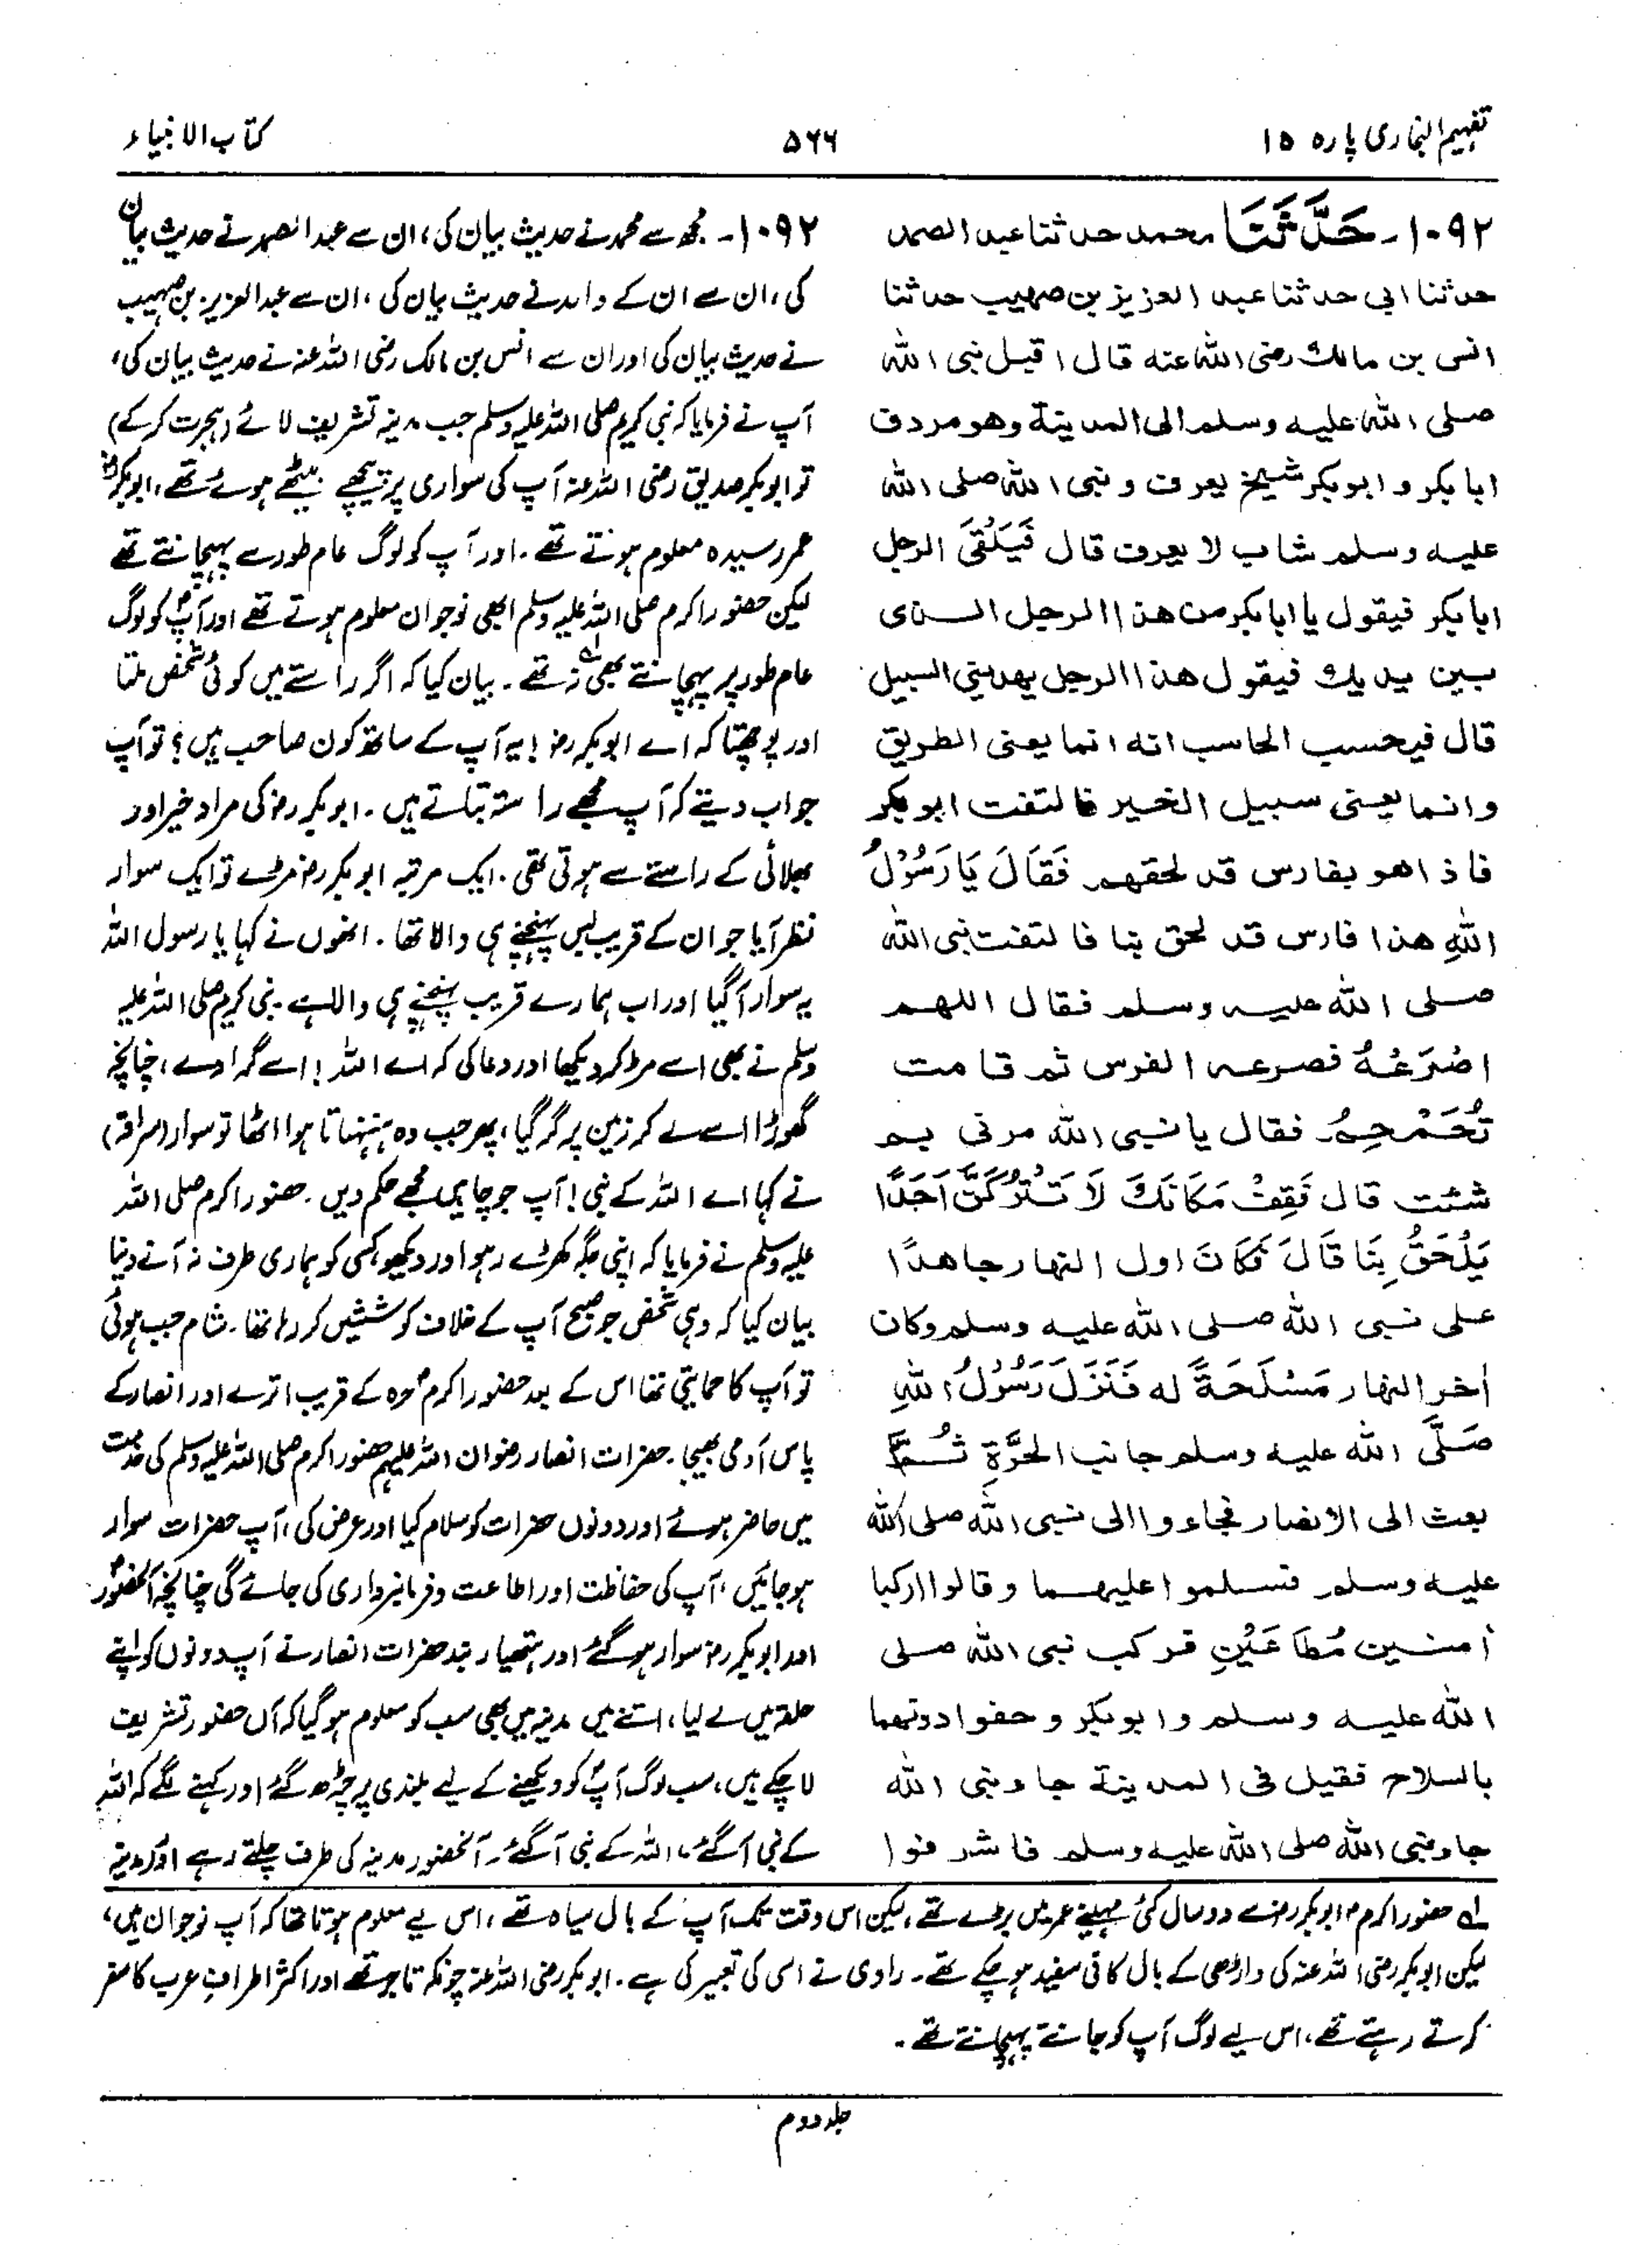 تفہیم البخاری پارہ ۱۵
۵۶۶
کتاب الانبیاء
۱۰۹۲۔ حَدَّثَنَا محمد حدثنا عبد الصمد
حدثنا ابی حدثنا عبد العزیز بن صهیب حدثنا
انس بن مالك رضی الله عنه قال اقبل نبی الله
صلی الله علیه وسلم الی المدینة وهو مردف
ابا بکر و ابو بکر شیخ یعرف و نبی الله صلی الله
علیه وسلم شاب لا یعرف قال فَیَلْقَی الرجل
ابا بکر فیقول یا ابا بکر من هذا الرجل الـذی
بـین یدیك فیقول هذا الرجل یهدینی السبیل
قال فیحسب الحاسب انه انما یعنی الطریق
وانما یعنی سبیل الخیر فالتفت ابو بکر
فاذا هو بفارس قد لحقهم فَقَالَ یَا رَسُوْلُ
اللهِ هذا فارس قد لحق بنا فالتفت نبی الله
صلی الله علیه وسلم فقال اللهم
اصْرَعْهُ فصرعه الفرس ثم قامت
تُحَمْحِمُ فقال یا نبی الله مرنی بم
شئت قال فَقِفْ مَکَانَكَ لاَ تَتْرُکَنَّ اَحَدًا
یَلْحَقُ بِنَا قَالَ فَکَانَ اول النهار جاهدًا
علی نبی الله صلی الله علیه وسلم وکان
اٰخر النهار مَسْلَحَةً له فَنَزَلَ رَسُوْلُ اللهِ
صَلَّی الله علیه وسلم جانب الحَرَّةِ ثُمَّ
بعث الی الانصار فجاءوا الی نبی الله صلی الله
علیه وسلم فسلموا علیهما وقالوا ارکبا
اٰمنین مُطَاعَیْنِ فرکب نبی الله صلی
الله علیه وسلم وابو بکر وحفوا دونهما
بالسلاح فقیل فی المدینة جاء نبی الله
جاء نبی الله صلی الله علیه وسلم فاشرفوا
۱۰۹۲۔ مجھ سے محمد نے حدیث بیان کی، ان سے عبد الصمد نے حدیث بیان
کی، ان سے ان کے والد نے حدیث بیان کی، ان سے عبد العزیز بن صہیب
نے حدیث بیان کی اور ان سے انس بن مالک رضی اللہ عنہ نے حدیث بیان کی،
آپ نے فرمایا کہ نبی کریم صلی اللہ علیہ وسلم جب مدینہ تشریف لائے (ہجرت کر کے)
تو ابوبکر صدیق رضی اللہ عنہ آپ کی سواری پر پیچھے بیٹھے ہوئے تھے، ابوبکرؓ
عمر رسیدہ معلوم ہوتے تھے۔ اور آپ کو لوگ عام طور سے پہچانتے تھے
لیکن حضور اکرم صلی اللہ علیہ وسلم ابھی نوجوان معلوم ہوتے تھے اور آپؐ کو لوگ
عام طور پر پہچانتے بھی نہ تھے لہ۔ بیان کیا کہ اگر راستے میں کوئی شخص ملتا
اور پوچھتا کہ اے ابوبکر رض! یہ آپ کے ساتھ کون صاحب ہیں؟ تو آپ
جواب دیتے کہ آپ مجھے راستہ بتاتے ہیں۔ ابوبکر رض کی مراد خیر اور
بھلائی کے راستے سے ہوتی تھی۔ ایک مرتبہ ابوبکر رض مڑے تو ایک سوار
نظر آیا جو ان کے قریب بس پہنچنے ہی والا تھا۔ انھوں نے کہا یا رسول اللہ
یہ سوار آگیا اور اب ہمارے قریب پہنچنے ہی والا ہے۔ نبی کریم صلی اللہ علیہ
وسلم نے بھی اسے مڑ کر دیکھا اور دعا کی کہ اے اللہ! اسے گرا دے، چنانچہ
گھوڑا اسے لے کر زمین پر گر گیا، پھر جب وہ ہنہناتا ہوا اٹھا تو سوار (سراقہ)
نے کہا اے اللہ کے نبی! آپ جو چاہیں مجھے حکم دیں۔ حضور اکرم صلی اللہ
علیہ وسلم نے فرمایا کہ اپنی جگہ کھڑے رہو اور دیکھو کسی کو ہماری طرف نہ آنے دینا
بیان کیا کہ وہی شخص جو صبح آپ کے خلاف کوششیں کر رہا تھا۔ شام جب ہوئی
تو آپ کا حمایتی تھا اس کے بعد حضور اکرمؐ حرہ کے قریب اترے اور انصار کے
پاس آدمی بھیجا۔ حضرات انصار رضوان اللہ علیہم حضور اکرم صلی اللہ علیہ وسلم کی خدمت
میں حاضر ہوئے اور دونوں حضرات کو سلام کیا اور عرض کی، آپ حضرات سوار
ہو جائیں، آپ کی حفاظت اور اطاعت و فرمانبرداری کی جائے گی چنانچہ آنحضورؐ
اور ابوبکر رض سوار ہو گئے اور ہتھیار بند حضرات انصار نے آپ دونوں کو اپنے
حلقہ میں لے لیا، اتنے میں مدینہ میں بھی سب کو معلوم ہو گیا کہ آں حضور تشریف
لا چکے ہیں، سب لوگ آپؐ کو دیکھنے کے لیے بلندی پر چڑھ گئے اور کہنے لگے کہ اللہ
کے نبی آ گئے، اللہ کے نبی آ گئے۔ آنحضور مدینہ کی طرف چلتے رہے اور مدینہ
لہ حضور اکرمؐ ابوبکر رض سے دو سال کئی مہینے عمر میں بڑے تھے، لیکن اس وقت تک آپ کے بال سیاہ تھے، اس لیے معلوم ہوتا تھا کہ آپ نوجوان ہیں،
لیکن ابوبکر رضی اللہ عنہ کی داڑھی کے بال کافی سفید ہو چکے تھے۔ راوی نے اسی کی تعبیر کی ہے۔ ابوبکر رضی اللہ عنہ چونکہ تاجر تھے اور اکثر اطرافِ عرب کا سفر
کرتے رہتے تھے، اس لیے لوگ آپ کو جانتے پہچانتے تھے۔
جلد دوم